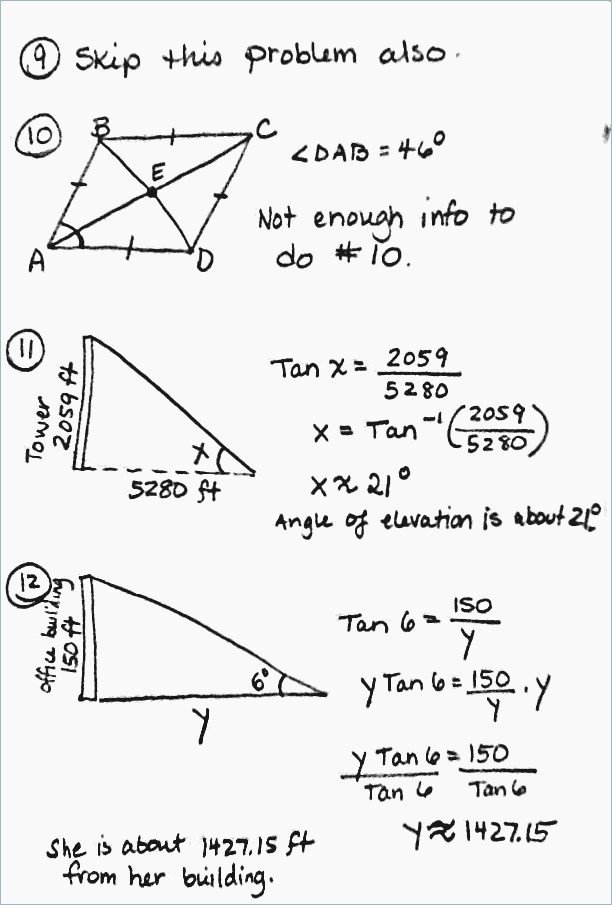 9 Skip this problem also.
10
B
C
E
A
D
∠DAB = 46°
Not enough info to
do # 10.
11
Tower
2059 ft
X
5280 ft
Tan x = 2059
5280
x = Tan⁻¹ (2059
5280)
x ≈ 21°
Angle of elevation is about 21°.
12
office building
150 ft
6°
y
Tan 6 = 150
y
y Tan 6 = 150 · y
y
y Tan 6 = 150
Tan 6 Tan 6
y ≈ 1427.15
She is about 1427.15 ft
from her building.